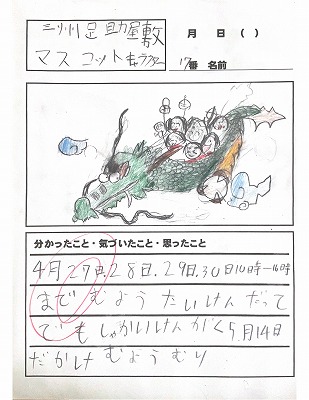 三州足助屋敷
マスコットキャラクター
月 日 ( )
17番 名前
分かったこと・気づいたこと・思ったこと
4月27日.28日.29日.30日10時-16時
までむりょうたいけんだって
でもしゃかいけんがく5月14日
だからむりょうむり